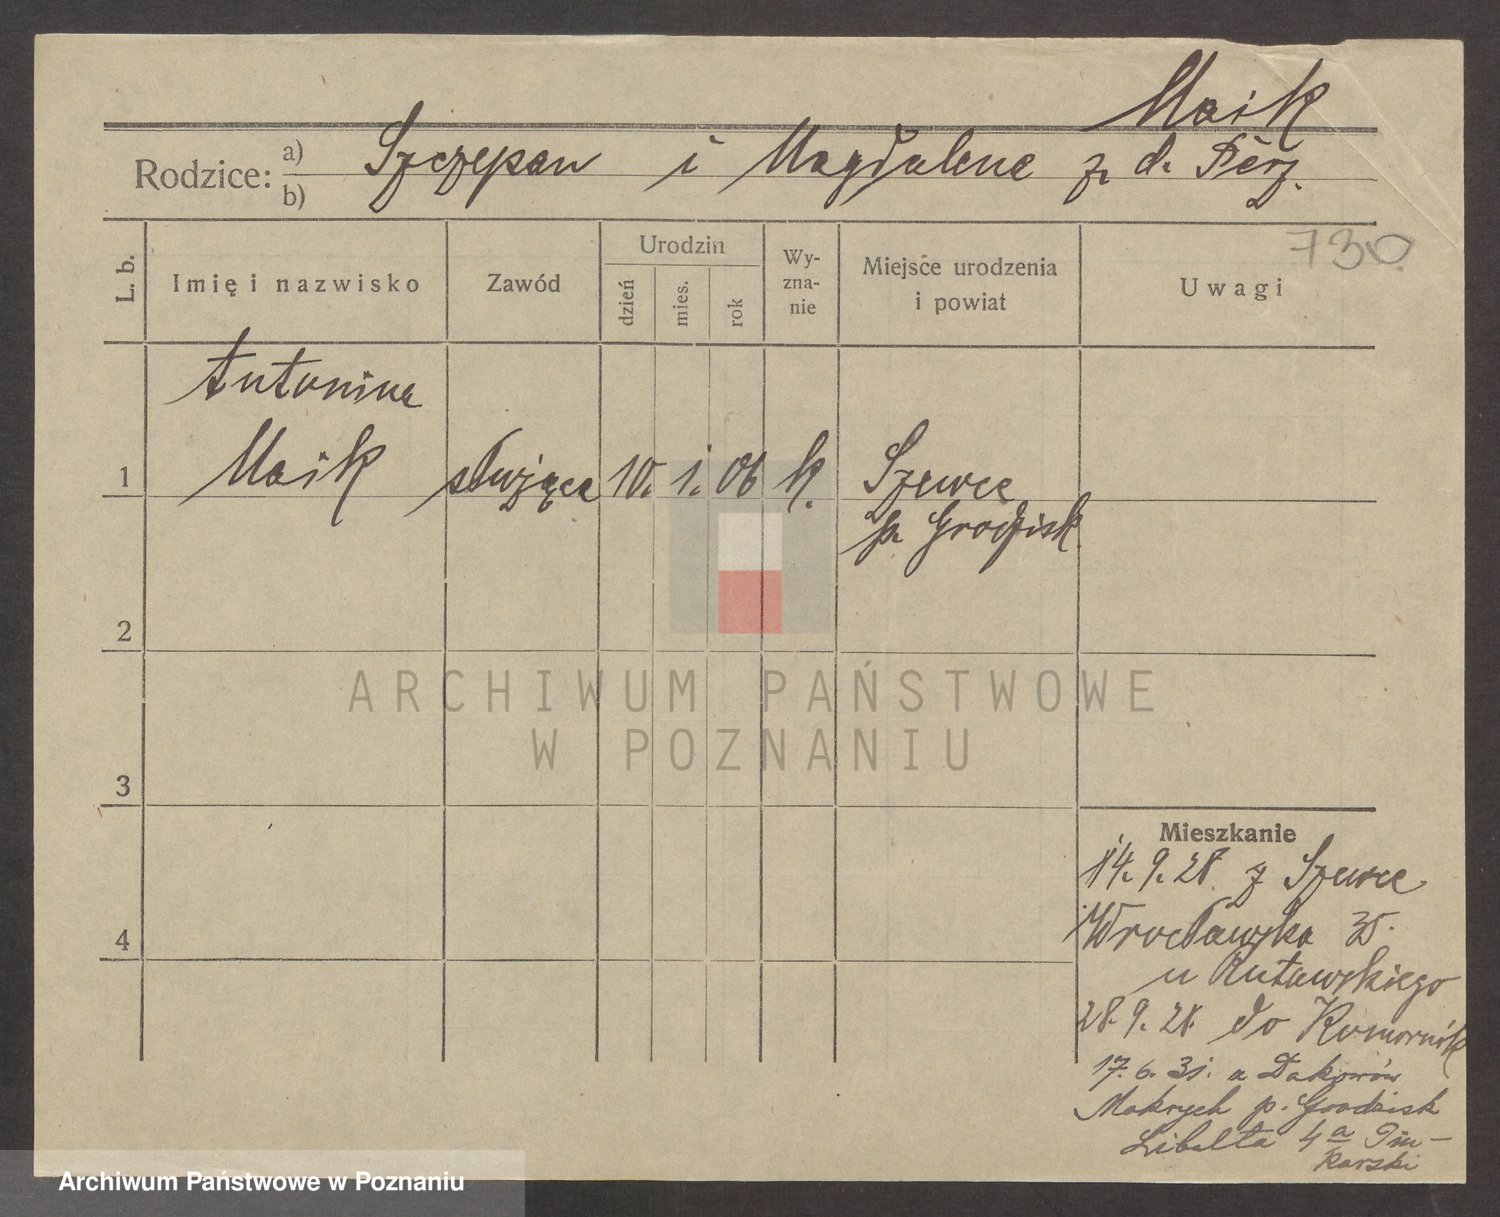 Maik
Rodzice: a) b) Szczepan i Magdalena z d. Pierz.
730.
L. b. Imię i nazwisko Zawód Urodzin dzień mies. rok Wy-zna-nie Miejsce urodzenia i powiat Uwagi
Antonina
1 Maik służąca 10. 1. 06 k. Szewce
p. Grodzisk
2
3
4
ARCHIWUM PAŃSTWOWE
W POZNANIU
Mieszkanie
14. 9. 28 z Szewce
Wrocławska 35.
u Rutawskiego
28. 9. 28. do Komornik
17. 6. 31. z Dakowów
Mokrych p. Grodzisk
Libelta 4a
Archiwum Państwowe w Poznaniu